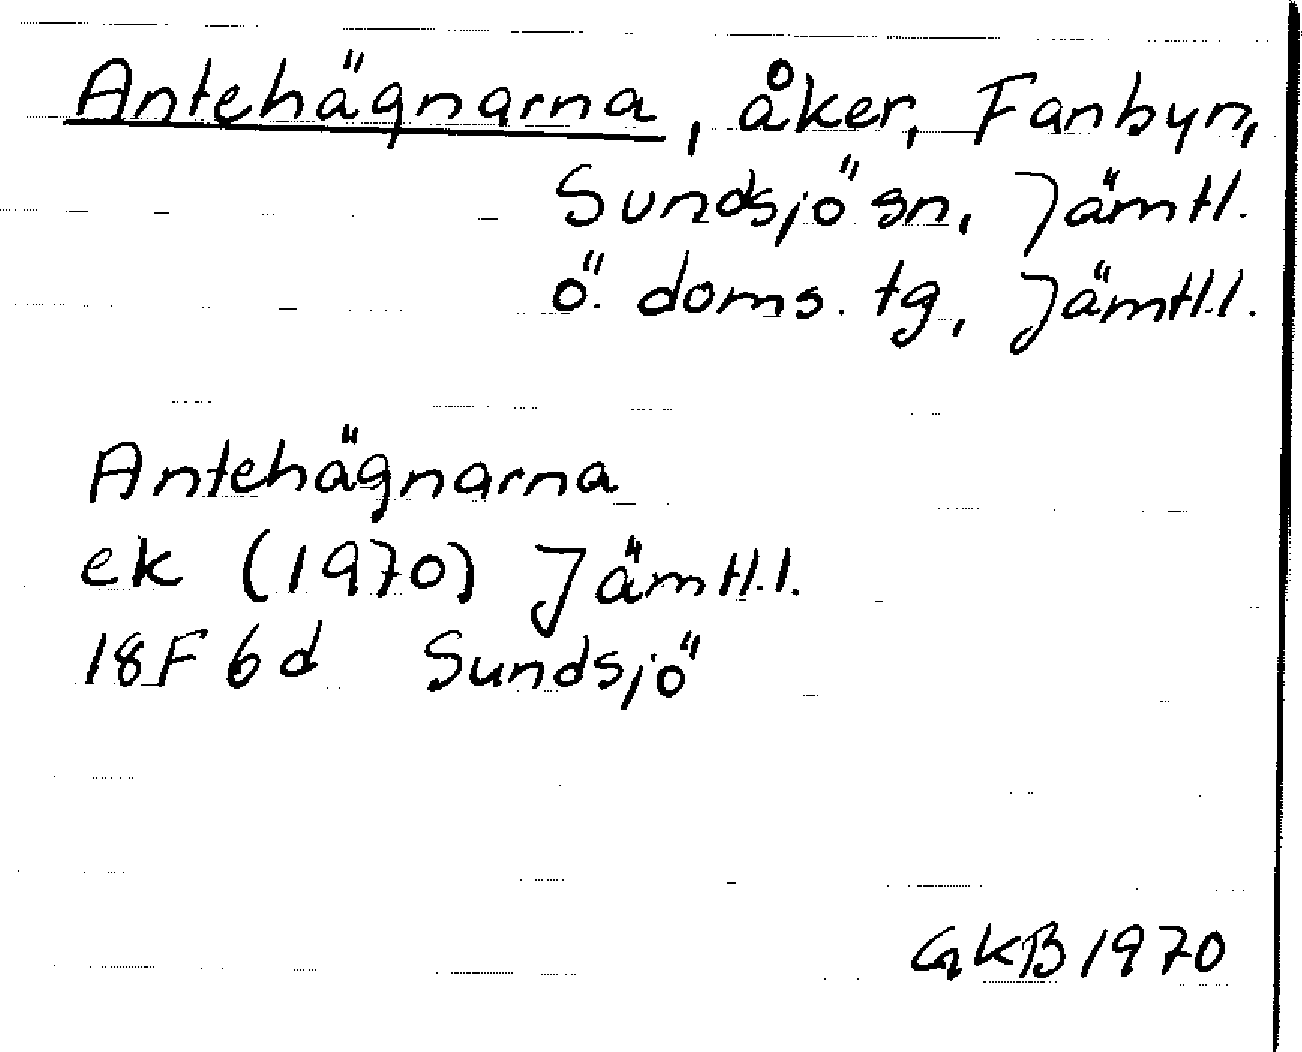 Antehägnarna, åker, Fanbyn,
Sundsjö sn, Jämtl.
ö. doms. tg, Jämtl.l.
Antehägnarna
ek (1970) Jämtl.l.
18F 6d Sundsjö
GKB 1970